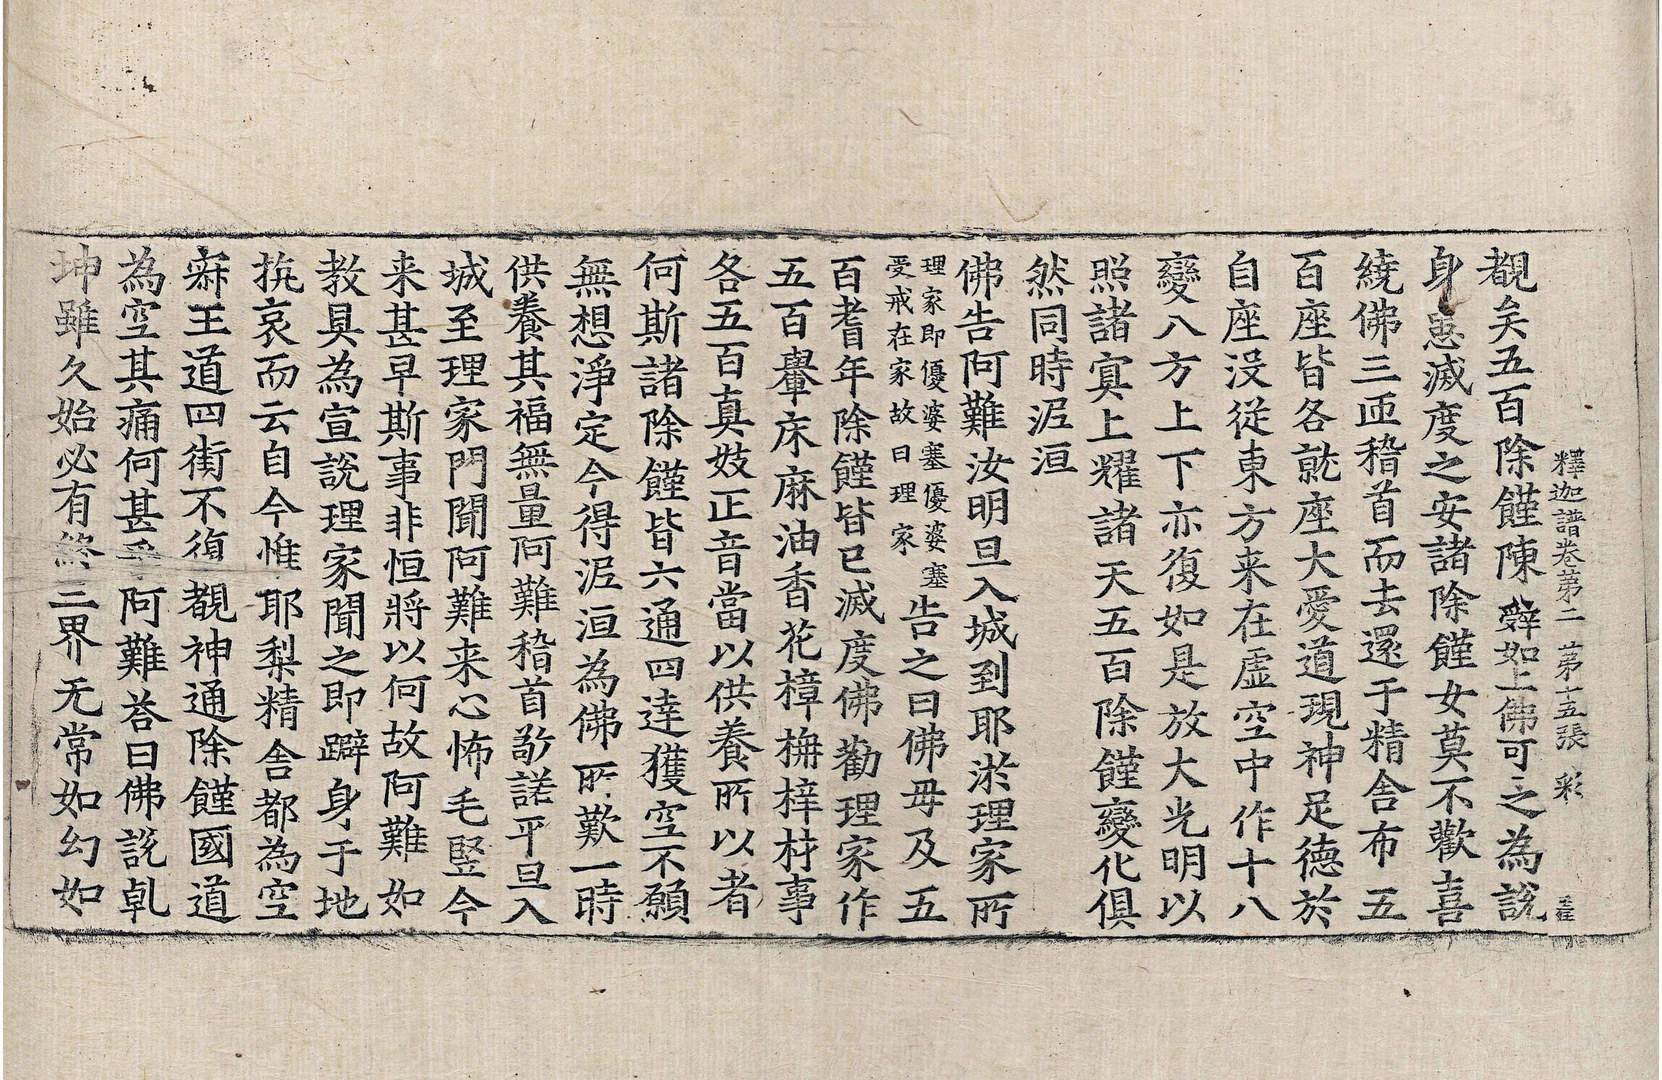 釋迦譜卷第二 苐十五張 彩
覩矣五百除饉陳辤如上佛可之為說
身患滅度之安諸除饉女莫不歡喜
繞佛三匝稽首而去還于精舍布五
百座皆各就座大愛道現神足德於
自座没從東方来在虚空中作十八
變八方上下亦復如是放大光明以
照諸冥上耀諸天五百除饉變化俱
然同時泥洹
佛告阿難汝明旦入城到耶淤理家所
理家即優婆塞優婆塞
受戒在家故曰理家
告之曰佛母及五
百耆年除饉皆已滅度佛勸理家作
五百轝床麻油香花樟栴梓材事
各五百真妓正音當以供養所以者
何斯諸除饉皆六通四達獲空不願
無想淨定今得泥洹為佛所歎一時
供養其福無量阿難稽首敬諾平旦入
城至理家門聞阿難来心怖毛竪今
来甚早斯事非恒將以何故阿難如
教具為宣說理家聞之即躃身于地
抗哀而云自今惟耶梨精舍都為空
寂王道四街不復覩神通除饉國道
為空其痛何甚乎阿難荅曰佛說乹
坤雖久始必有終三界无常如幻如